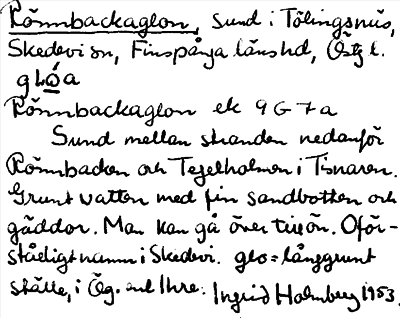 Rönnbackaglon, sund i Tölingsnäs,
Skedevi sn, Finspånga länshd, Östg l.
glòa
Rönnbackaglon ek 9G7a
Sund mellan stranden nedanför
Rönnbacken och Tegelholmen i Tisnaren.
Grunt vatten med fin sandbotten och
gäddor. Man kan gå över till ön. Oför-
ståeligt namn i Skedevi. glo = långgrunt
ställe, i Ög. enl Ihre. Ingrid Holmberg 1953.